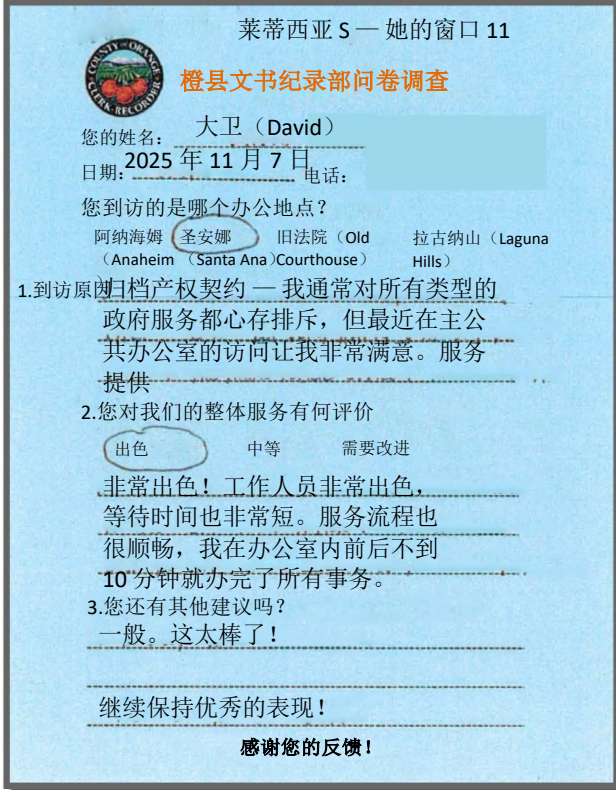 莱蒂西亚 S — 她的窗口 11
COUNTY OF ORANGE
CLERK-RECORDER
橙县文书纪录部问卷调查
您的姓名： 大卫（David）
日期: 2025 年 11 月 7 日 电话：
您到访的是哪个办公地点？
阿纳海姆 圣安娜 旧法院（Old 拉古纳山（Laguna
（Anaheim （Santa Ana）Courthouse） Hills）
）
1.到访原因归档产权契约 — 我通常对所有类型的
政府服务都心存排斥，但最近在主公
共办公室的访问让我非常满意。服务
提供
2.您对我们的整体服务有何评价
出色 中等 需要改进
非常出色！工作人员非常出色，
等待时间也非常短。服务流程也
很顺畅，我在办公室内前后不到
10 分钟就办完了所有事务。
3.您还有其他建议吗？
一般。这太棒了！
继续保持优秀的表现！
感谢您的反馈！